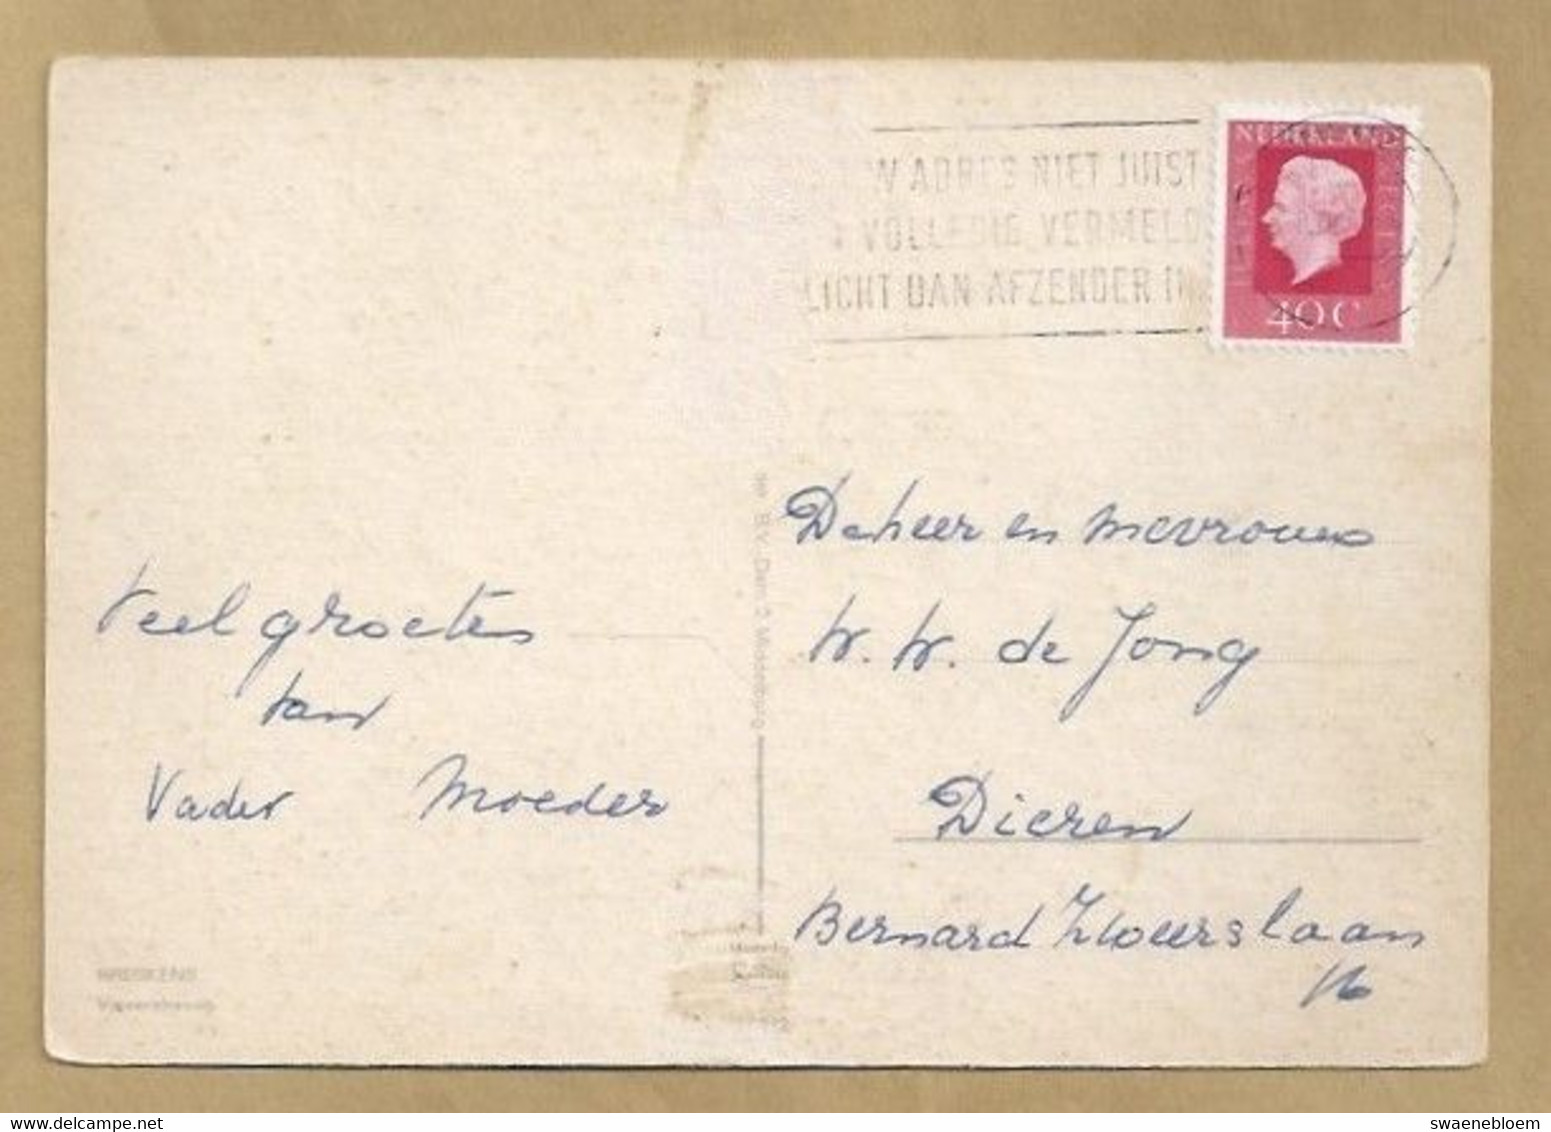 W ADRES NIET JUIST
VOLLEDIG VERMELD
LICHT DAN AFZENDER IN
NEDERLAND
40 C
Veel groeten
van
Vader Moeder
De heer en mevrouw
W. W. de Jong
Dieren
Bernard Zweerslaan
16
BRESKENS
Vissershaven
www.delcampe.net
swaenebloem